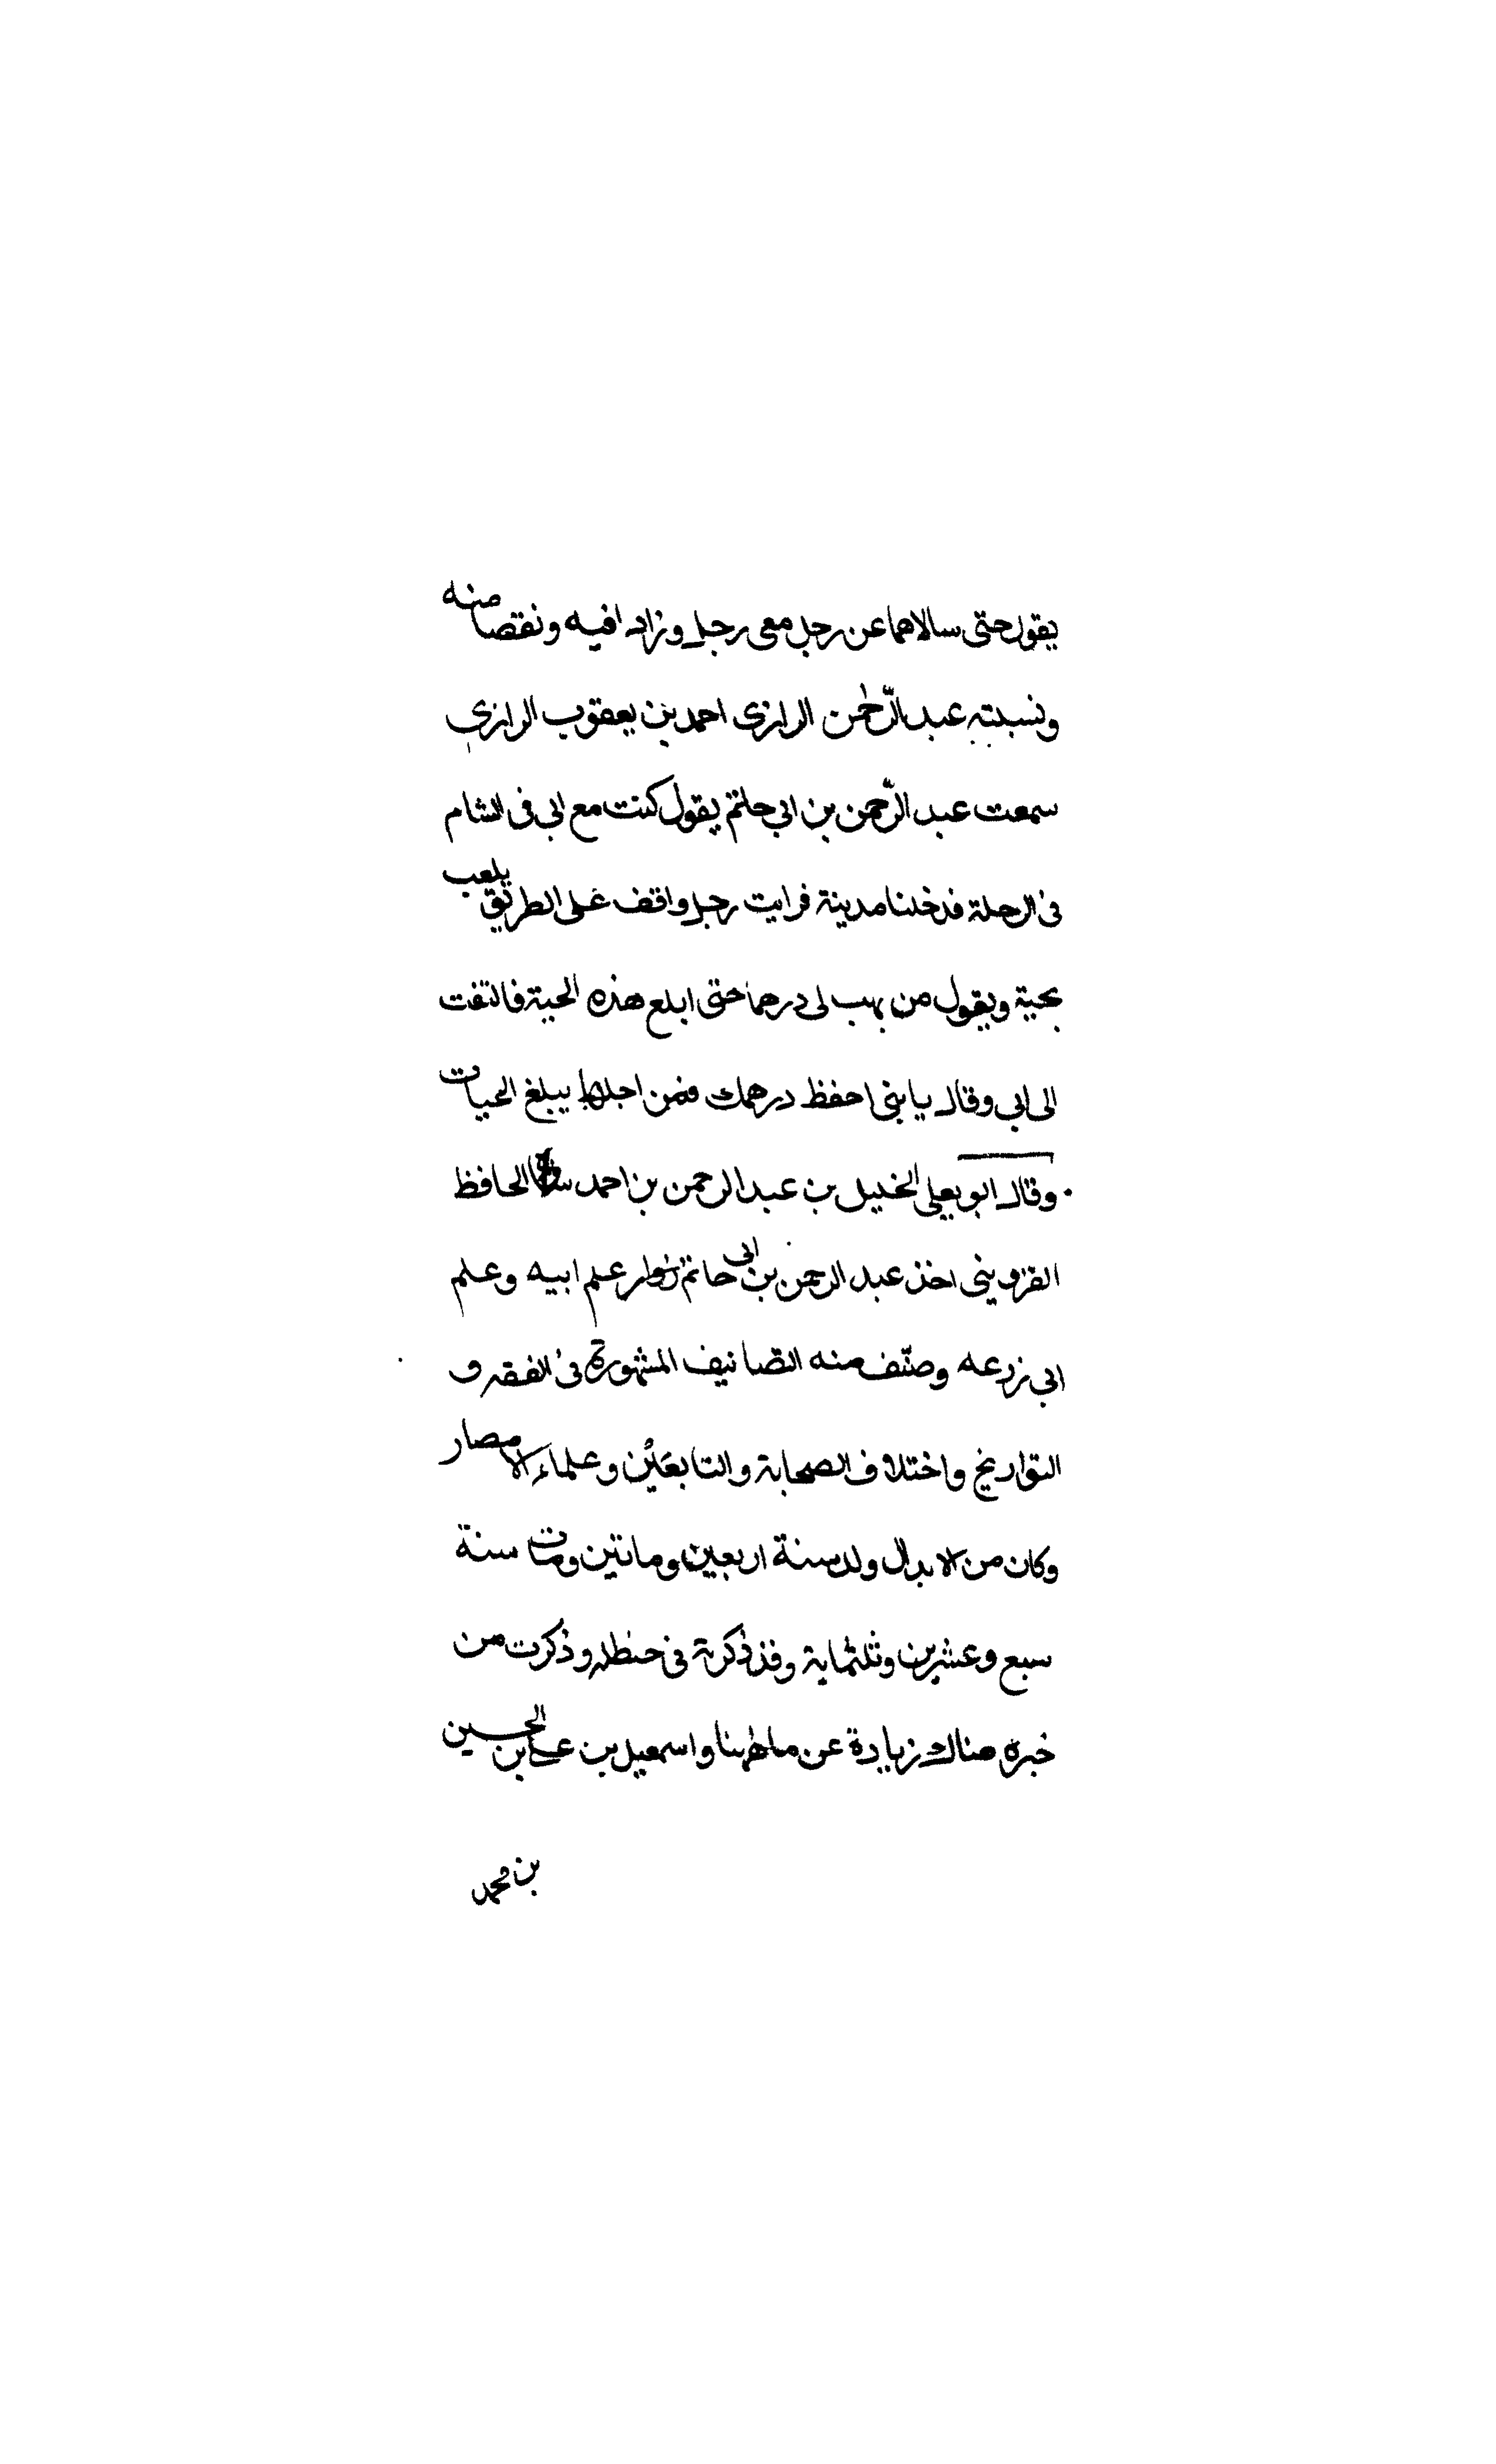 يقول حتى سالاهما عن رجل معى رجل وزادا فيه ونقصا منه
ونسبته عبد الرّحمن الرازى احمد بن يعقوب الرازى
سمعت عبد الرّحمن بن ابى حاتم يقول كنت مع ابى فى الشام
فى الرحلة فدخلنا مدينة فرايت رجل واقف على الطريق يلعب
بحية ويقول من يهب لى درهما حتى ابلع هذه الحية فالتفت
الى ابى وقال يا بنى احفظ درهمك فمن اجلها يبلغ الحيات
وقال ابو يعلى الخليل بن عبد الرحمن بن احمد الحافظ
القزوينى اخذ عبد الرحمن بن ابى حاتم علم ابيه وعلم
ابى زرعه وصنّف منه التصانيف المشهورة فى الفقه و
التواريخ واختلاف الصحابة والتابعين وعلماء الامصار
وكان من الابدال ولد سنة اربعين وماتين ومات سنة
سبع وعشرين وثلثماية وقد ذكرته فى حنظله وذكرت من
خبره هناك زيادة عن ما ههنا واسمعيل بن على بن الحسين
بن محمد